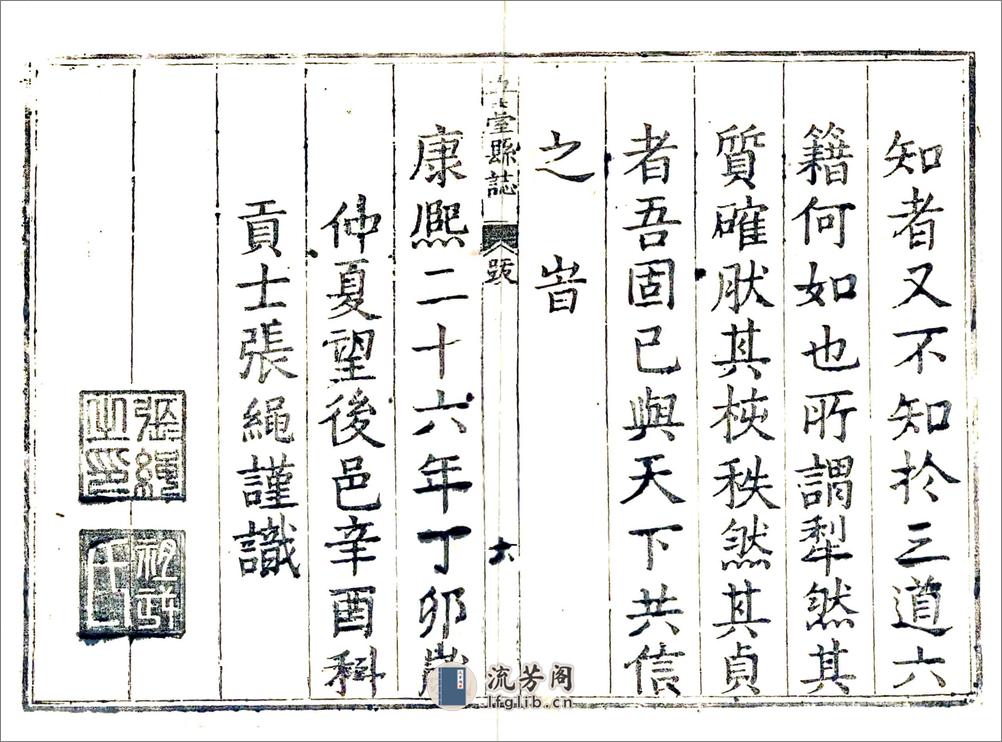 知者又不知扵三道六
籍何如也所謂犁然其
質確肰其梜秩然其貞
者吾固已與天下共信
之　旹
堂縣誌　跋　六
康熈二十六年丁卯歲
仲夏望後邑辛酉科
貢士張繩謹識
張繩之印
祖武氏
流芳阁
lfglib.cn